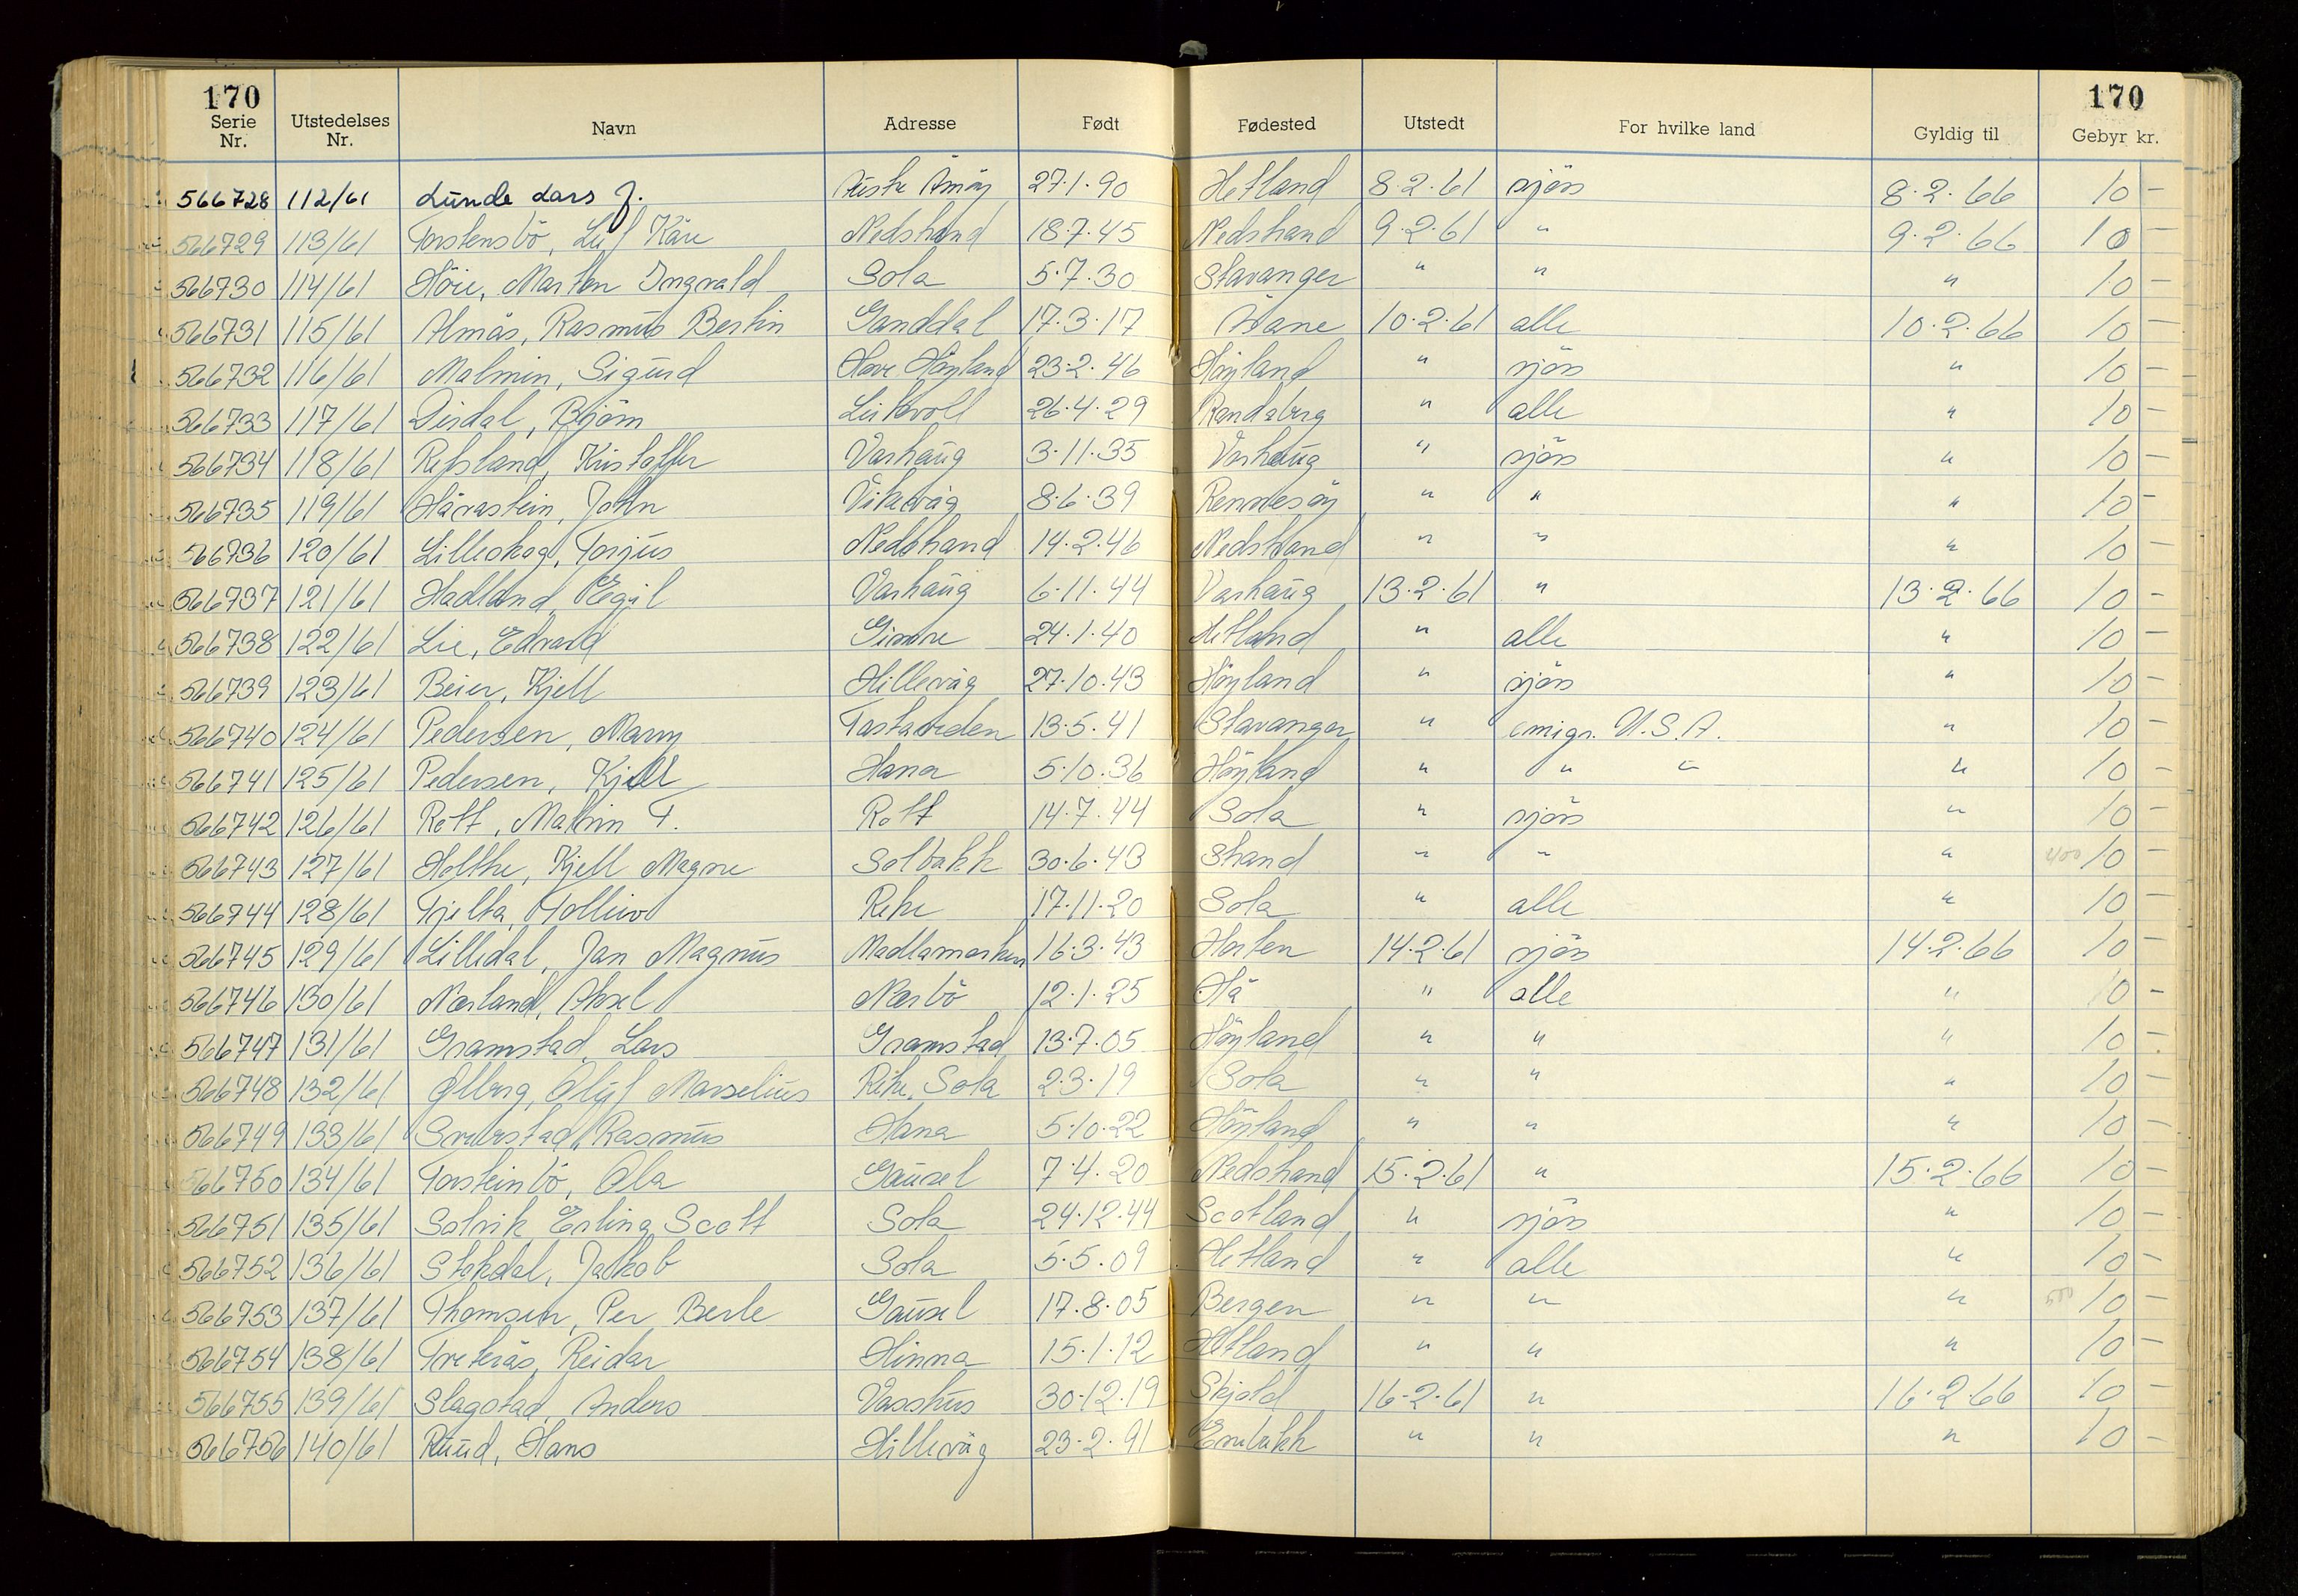 170 170
Serie Nr. Utstedelses Nr. Navn Adresse Født Fødested Utstedt For hvilke land Gyldig til Gebyr kr.
566728 112/61 Lunde Lars J. Åmöy 27.1.90 Hetland 8.2.61 sjös 8.2.66 10 -
566729 113/61 Torstensbö, Leif Kåre Nedstrand 18.7.45 Nedstrand 9.2.61 " 9.2.66 10 -
566730 114/61 Höie, Marton Ingvald Sola 5.7.30 Stavanger " " " 10 -
566731 115/61 Almås, Rasmus Bertin Ganddal 17.3.17 Åsane 10.2.61 alle 10.2.66 10 -
566732 116/61 Malmin, Sigurd Hove Höyland 23.2.46 Höyland " sjös " 10 -
566733 117/61 Dirdal, Björn Leikvoll 26.4.29 Randaberg " alle " 10 -
566734 118/61 Refsland, Kristoffer Varhaug 3.11.35 Varhaug " sjös " 10 -
566735 119/61 Håvastein, John Vikevåg 8.6.39 Rennesöy " " " 10 -
566736 120/61 Lilleskog, Torjus Nedstrand 14.2.46 Nedstrand " " " 10 -
566737 121/61 Hadland, Egil Varhaug 6.11.44 Varhaug 13.2.61 " 13.2.66 10 -
566738 122/61 Lie, Edvard Gimre 24.1.40 Hetland " alle " 10 -
566739 123/61 Beier, Kjell Hillevåg 27.10.43 Höyland " sjös " 10 -
566740 124/61 Pedersen, Marry Tastaveden 13.5.41 Stavanger " emigr. U.S.A. " 10 -
566741 125/61 Pedersen, Kjell Hana 5.10.36 Höyland " " " " 10 -
566742 126/61 Rott, Malvin T. Rott 14.7.44 Sola " sjös " 10 -
566743 127/61 Holthe, Kjell Magne Solbakk 30.6.43 Strand " " " 400 10 -
566744 128/61 Tjelta, Tolleiv Reke 17.11.20 Sola " alle " 10 -
566745 129/61 Lilledal, Jan Magnus Madlamarken 16.3.43 Horten 14.2.61 sjös 14.2.66 10 -
566746 130/61 Nærland, Aksel Nærbö 12.1.25 Hå " alle " 10 -
566747 131/61 Gramstad, Lars Gramstad 13.7.05 Höyland " " " 10 -
566748 132/61 Ølberg, Oluf Marselius Reke, Sola 2.3.19 Sola " " " 10 -
566749 133/61 Rasmus Hana 5.10.22 Höyland " " " 10 -
566750 134/61 Torsteinbö, Ola Gausel 7.4.20 Nedstrand 15.2.61 " 15.2.66 10 -
566751 135/61 Solvik, Erling Scott Sola 24.12.44 Scotland " sjös " 10 -
566752 136/61 Stokdal, Jakob Sola 5.5.09 Hetland " alle " 10 -
566753 137/61 Thomsen, Per Berle Gausel 17.8.05 Bergen " " " 500 10 -
566754 138/61 Tveterås, Reidar Hinna 15.1.12 Hetland " " " 10 -
566755 139/61 Slagstad, Anders Vasshus 30.12.19 Skjold 16.2.61 " 16.2.66 10 -
566756 140/61 Ruud, Hans Hillevåg 23.2.91 Enebakk " " " 10 -